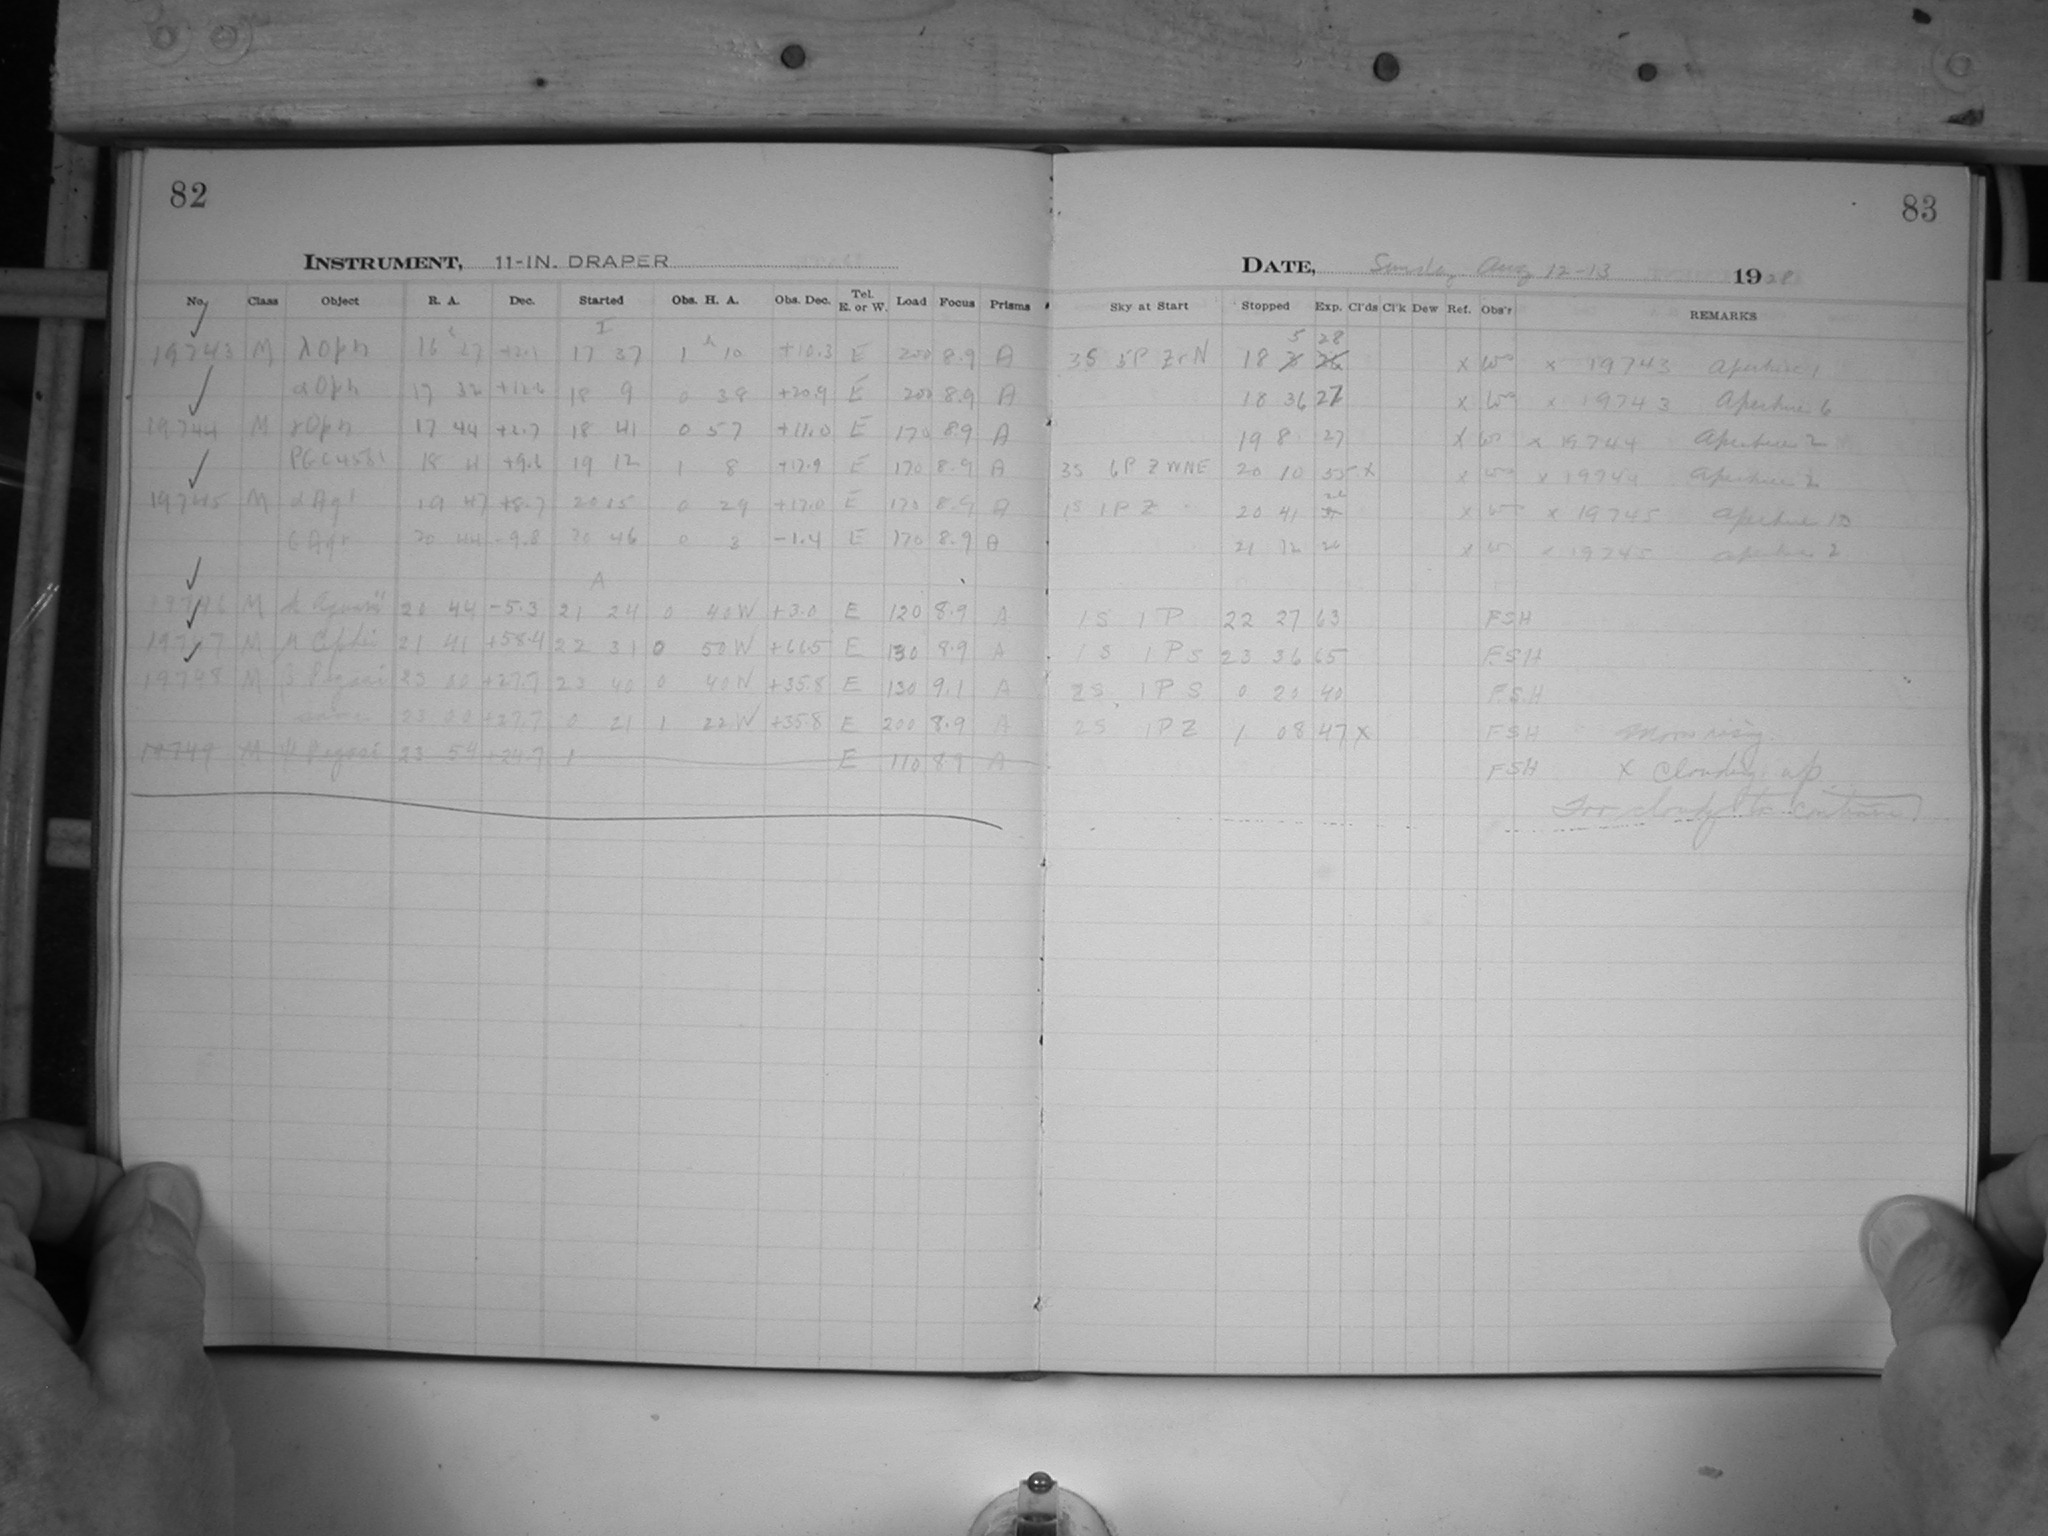 82
INSTRUMENT, 11-IN. DRAPER
No. Class Object R. A. Dec. Started Obs. H. A. Obs. Dec. Tel. E. or W. Load Focus Prisms
I
19743 M λ Oph 16 27 +2.1 17 37 1 h 10 +10.3 E 200 8.9 A
α Oph 17 32 +12.6 18 9 0 38 +20.9 E 200 8.9 A
19744 M γ Oph 17 44 +2.7 18 41 0 57 +11.0 E 170 8.9 A
PGC4581 18 +9.6 19 12 1 8 +17.9 E 170 8.9 A
19745 M α Aql 19 47 +8.7 20 15 0 29 +17.0 E 170 8.9 A
20 44 -9.8 20 46 0 3 -1.4 E 170 8.9 A
A
19746 M 20 44 -5.3 21 24 0 40W +3.0 E 120 8.9 A
19747 M μ Cephei 21 41 +58.4 22 31 0 50W +66.5 E 130 8.9 A
19748 M β Pegasi 23 00 +27.7 23 40 0 40W +35.8 E 130 9.1 A
same 23 00 +27.7 0 21 1 22W +35.8 E 200 8.9 A
19749 M Pegasi 23 54 +24.7 1 E 110 8.9 A
83
DATE, Sunday Aug 12-13 1928
Sky at Start Stopped Exp. Cl'ds Cl'k Dew Ref. Obs'r REMARKS
5 28
3S 5P Z+N 18 x x 19743 Aperture 1
18 36 27 x x 19743 Aperture 6
19 8 27 x x 19744 Aperture 2
3S 6P Z WNE 20 10 55 x x x 19744 Aperture 2
1S 1P Z 20 41 26 x x 19745 Aperture 10
21 12 26 x x 19745 Aperture 2
1S 1P 22 27 63 FSH
1S 1P S 23 36 65 FSH
2S 1P S 0 20 40 FSH
2S 1P Z 1 08 47 x FSH Moon rising.
FSH x Clouding up
Too cloudy to continue